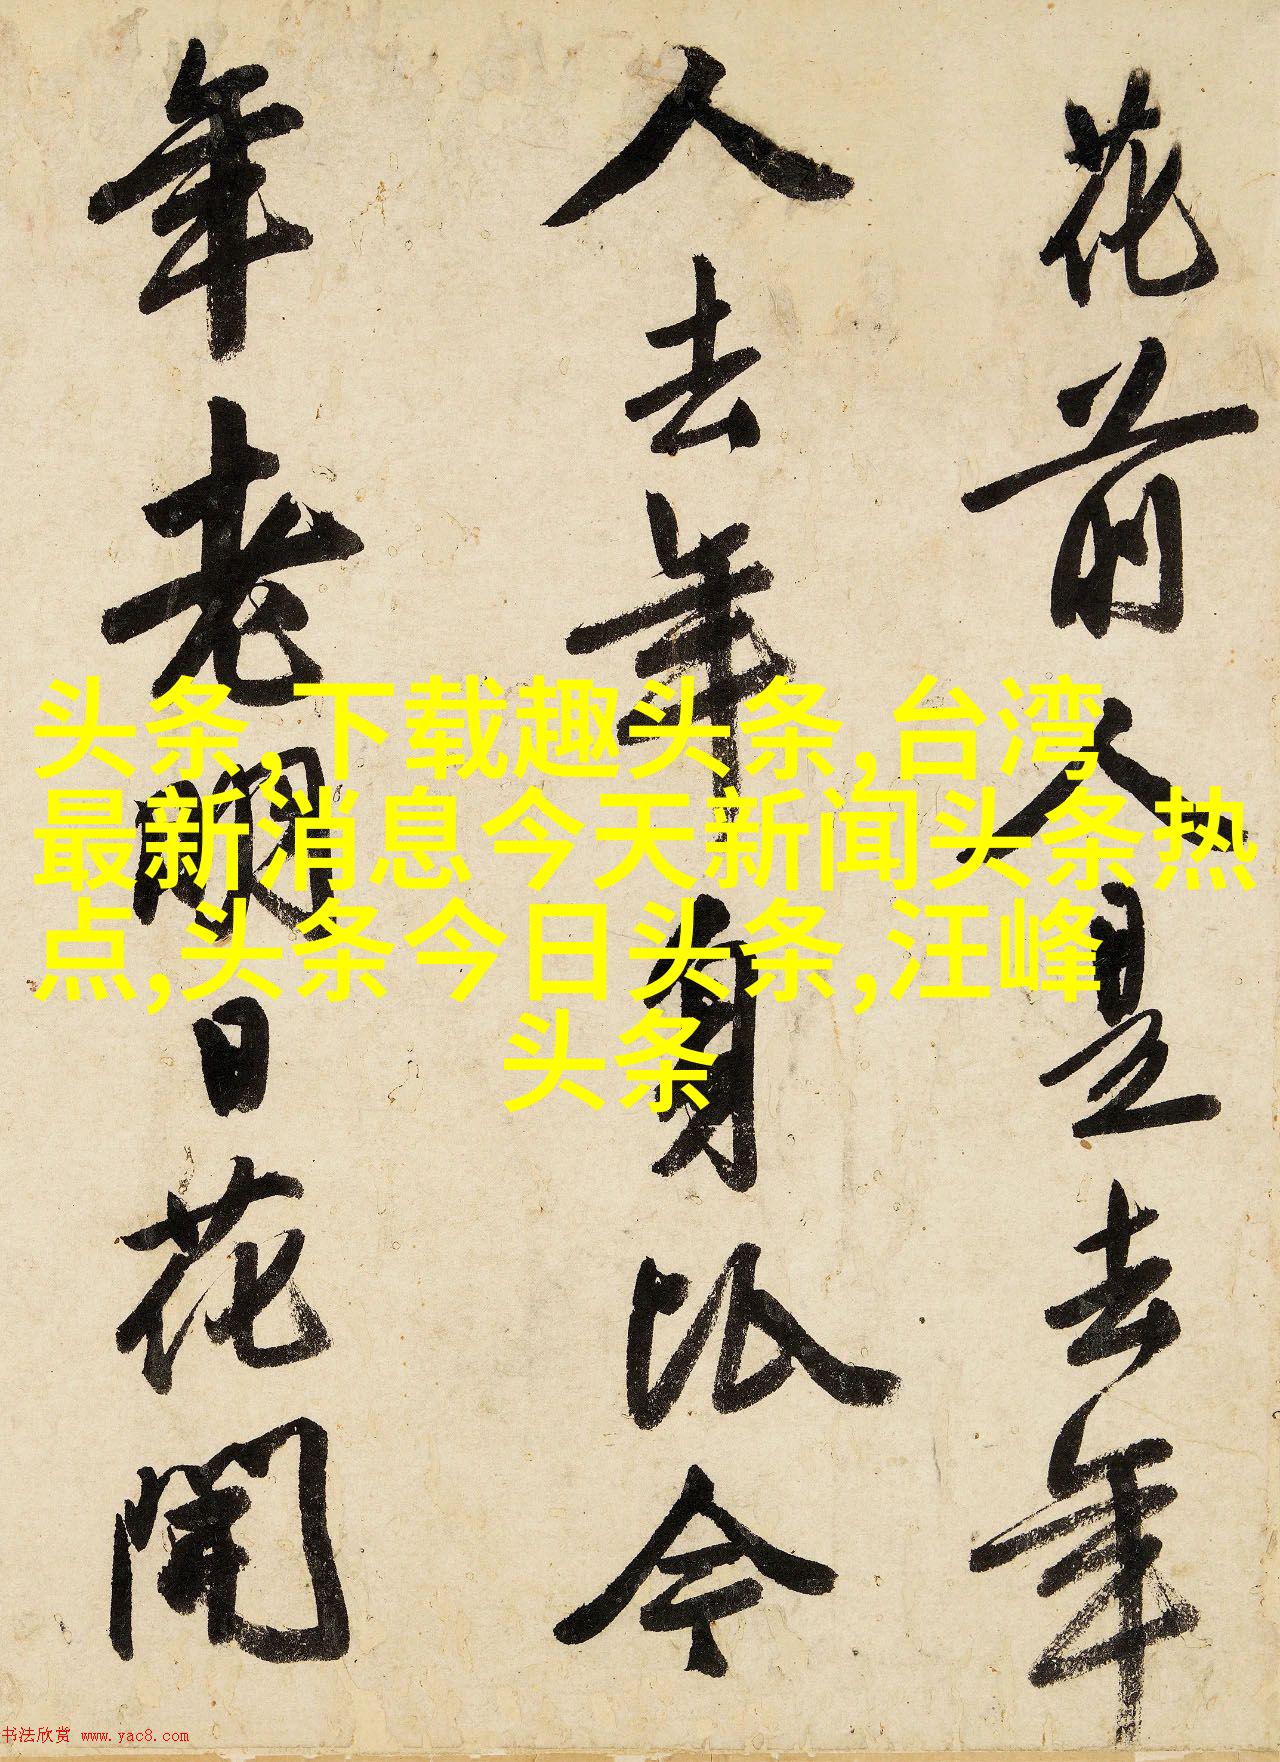 花前人是去年
人去年身比今
年老明日花開
头条,下载趣头条,台湾
最新消息今天新闻头条热
点,头条今日头条,汪峰
头条
书法欣赏 www.yac8.com